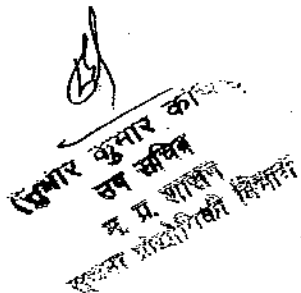 कुमार
उप सचिव
म. प्र. शासन
सूचना प्रौद्योगिकी विभाग